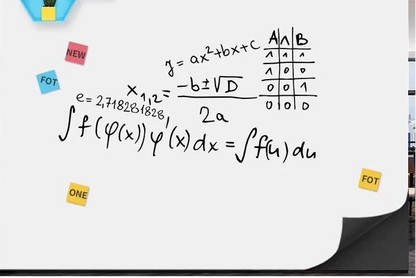 NEW
FOT
y = ax²+bx+c
A ∧ B
1 1 1
1 0 0
0 0 1
0 0 0
x₁,₂ = (-b±√D)/2a
e = 2,718281828,
∫f(φ(x))φ'(x)dx = ∫f(u)du
ONE
FOT